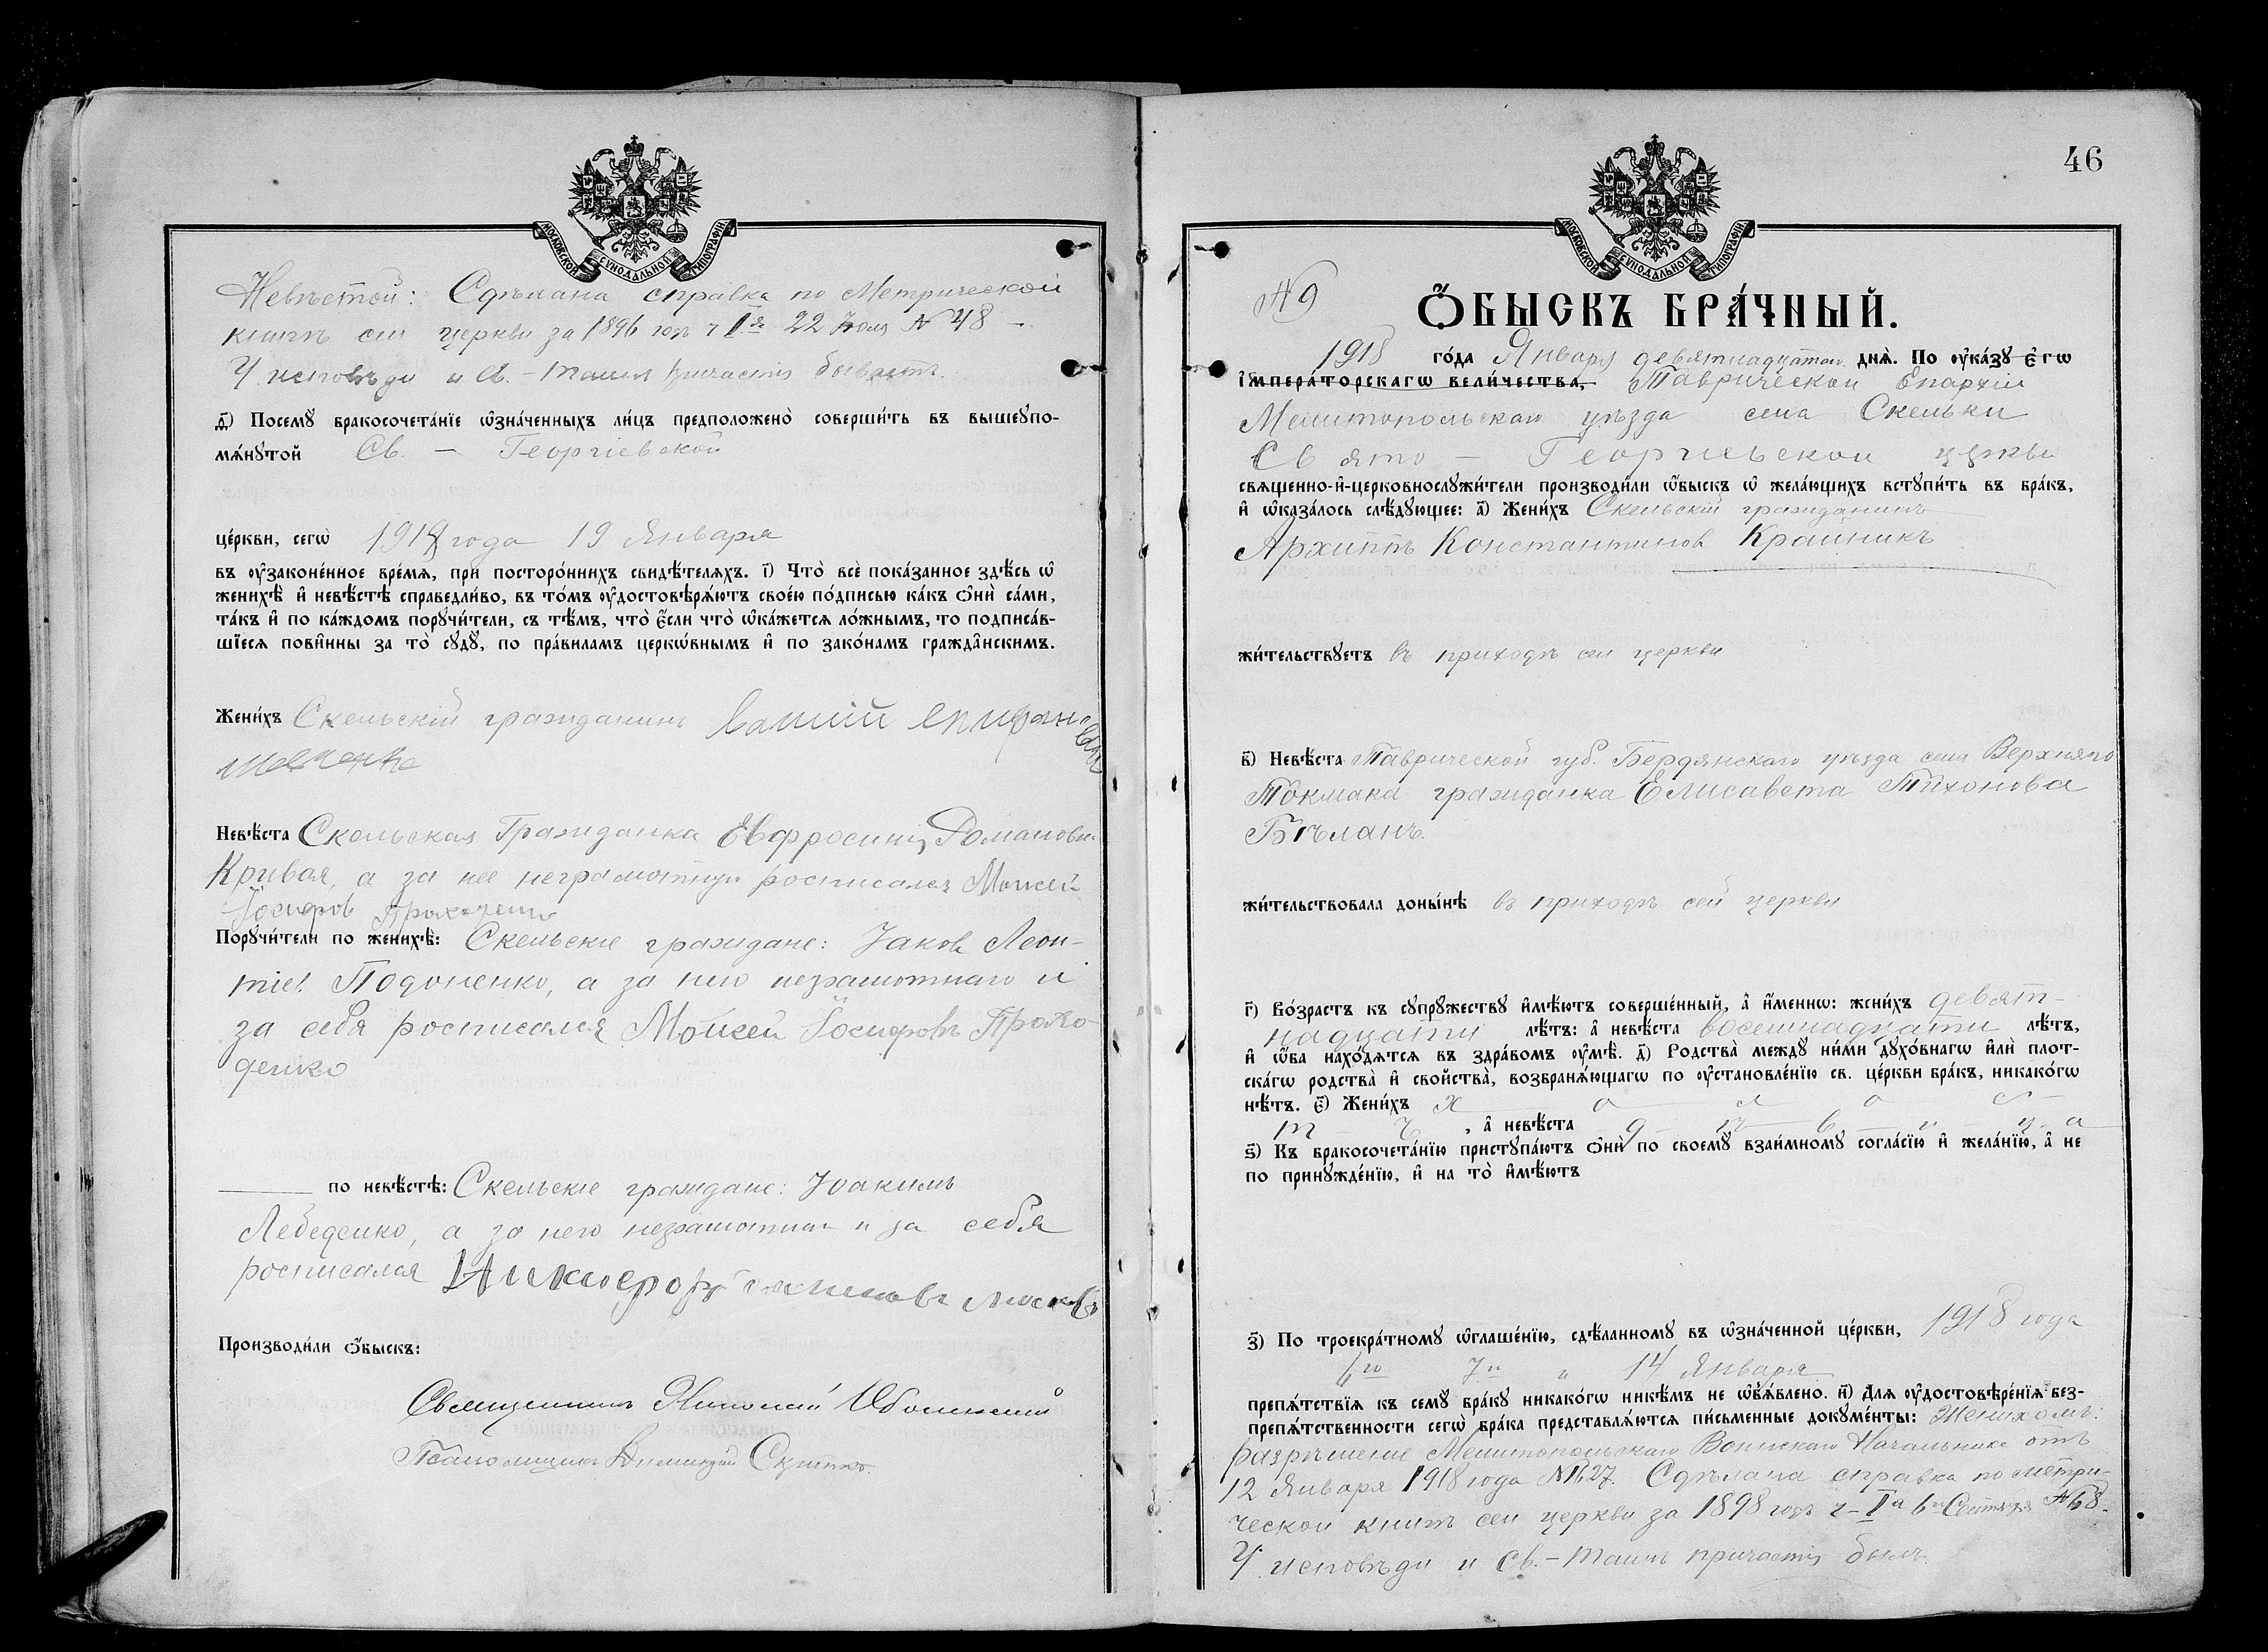 МОСКОВСКОЙ СУНОДАЛЬНОЙ ТИПОГРАФІИ
Невѣстой: Сдѣлана справка по Метрической
книгѣ сей церкви за 1896 годъ ч Iя 22 Іюля № 48 –
У исповѣди и Св. – Таинъ Причастія бываетъ.
д҃) Посемꙋ бракосочета́нїе ѡ҆зна́ченныхъ ли́цъ предположено̀ соверши́ть въ вышеꙋпо-
мѧ́нꙋтой Св. – Георгіевской
це́ркви, сегѡ̀ 1918 года 19 Января
въ ᲂу҆законе́нное вре́мѧ, при посторо́ннихъ свидѣ́телѧхъ. і҃) Что̀ всѐ пока́занное здѣ́сь ѡ҆
женихѣ̀ и҆ невѣ́стѣ справедли́во, въ то́мъ ᲂу҆достовѣрѧ́ютъ свое́ю по́дписью ка́къ ѻ҆нѝ са́ми,
та́къ и҆ по ка́ждомъ порꙋчи́тели, съ тѣ́мъ, что̀ є҆́сли что̀ ѡ҆ка́жетсѧ ло́жнымъ, то подписа́в-
шїесѧ пови́нны за то̀ сꙋдꙋ̀, по пра́виламъ церкѡ́внымъ и҆ по зако́намъ гражда́нскимъ.
Жени́хъ Скельскій гражданинъ
Невѣ́ста Скельская Гражданка Евфросинія Романовна
Кривая, а за нее неграмотную росписался Моисей
Іосифов Проходенко
Порꙋчи́тели по женихѣ̀: Скельскіе граждане: Іаковъ Леон-
тіев. Подоненко, а за него неграмотнаго и
за себя росписался Моисей Іосифовъ Прохо-
денко
по невѣ́стѣ: Скельскіе граждане: Іоакимъ
Лебеденко, а за него неграмотнаго и за себя
росписался Никифоръ
Производи́ли ѻ҆́быскъ:
Священникъ Николай Оболенский
Псаломщикъ Скрипко.
46
МОСКОВСКОЙ СУНОДАЛЬНОЙ ТИПОГРАФІИ
№ 9
Ѻ҆́БЫСКЪ БРА́ЧНЫЙ.
1918 го́да Января девятнадцатаго днѧ̀. По ᲂу҆ка́зꙋ є҆гѡ̀
і҆мпера́торскагѡ вели́чества, Таврической Епархіи
Мелитопольскаго уѣзда села Скельки
Свято – Георгіевской церкви
свѧще́нно-и҆-церковнослꙋжи́тели производи́ли ѻ҆́быскъ ѡ҆ жела́ющихъ встꙋпи́ть въ бра́къ,
и҆ ѡ҆каза́лось слѣ́дꙋющее: а҃) Жени́хъ Скельскій гражданинъ
Архиппъ Константиновъ Крайникъ
жи́тельствꙋетъ въ приходѣ сей церкви
в҃) Невѣ́ста Таврической губ. Бердянскаго уѣзда села Верхняго
Токмака гражданка Елисавета Тихонова
Бѣланъ.
жи́тельствовала доны́нѣ въ приходѣ сей церкви
г҃) Во́зрастъ къ сꙋпрꙋ́жествꙋ и҆мѣ́ютъ соверше́нный, а҆ и҆́меннѡ: жени́хъ девят-
надцати лѣ́тъ: а҆ невѣ́ста восемнадцати лѣ́тъ,
и҆ ѻ҆́ба нахо́дѧтсѧ въ здра́вомъ ᲂу҆мѣ̀. д҃) Родства̀ междꙋ̀ ни́ми дꙋхо́внагѡ и҆лѝ плот-
ска́гѡ родства̀ и҆ сво́йства, возбранѧ́ющагѡ по ᲂу҆становле́нїю св. це́ркви бра́къ, никако́гѡ
нѣ́тъ. є҃) Жени́хъ х о л о с
т ъ, а҆ невѣ́ста д ѣ в и ц а
ѕ҃) Къ бракосочета́нїю пристꙋпа́ютъ ѻ҆нѝ по своемꙋ̀ взаи́мномꙋ согла́сїю и҆ жела́нїю, а҆ не
по принꙋжде́нїю, и҆ на то̀ и҆мѣ́ютъ
з҃) По троекра́тномꙋ ѡ҆глаше́нїю, сдѣ́ланномꙋ въ ѡ҆зна́ченной це́ркви, 1918 года
6го 7го и 14 Января
препѧ́тствїѧ къ семꙋ̀ бра́кꙋ никако́гѡ никѣ́мъ не ѡ҆б̾ѧ́влено. и҃) Длѧ ᲂу҆достовѣре́нїѧ без-
препѧ́тственности сегѡ̀ бра́ка представлѧ́ютсѧ пи́сьменные докꙋме́нты: Женихомъ:
разрѣшеніе Мелитопольскаго Воинскаго Начальника отъ
12 Января 1918 года Сдѣлана справка по метри-
ческой книгѣ сей церкви за 1898 годъ ч – Iя 6го Сентября № 68.
У исповѣди и Св. – Таинъ причастія былъ.